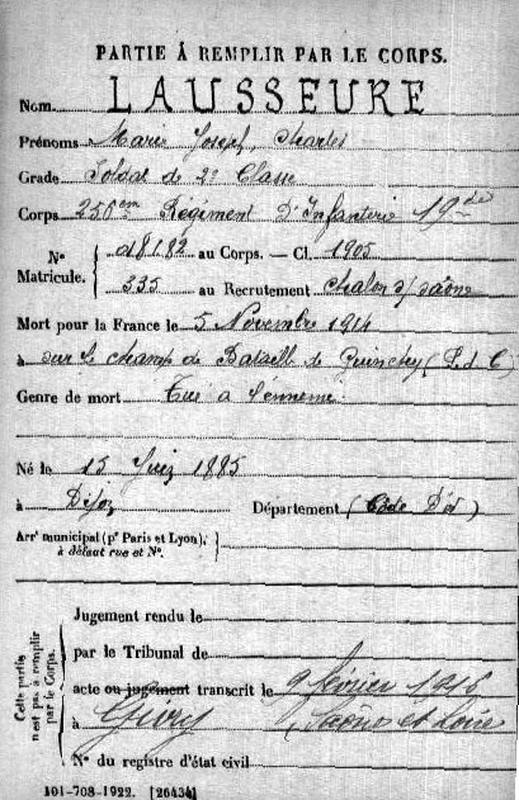 PARTIE À REMPLIR PAR LE CORPS.
Nom LAUSSEURE
Prénoms Marie Joseph, Charles
Grade Soldat de 2e Classe
Corps 256em Régiment D'Infanterie 19e
N° Matricule. 18182 au Corps. — Cl. 1905
335 au Recrutement Chalon s/ Saône
Mort pour la France le 5 Novembre 1914
à sur le champ de Bataille de Quinchy (P. d. C)
Genre de mort Tué a l'ennemi
Né le 15 Juin 1885
à Dijon Département (Côte D'or)
Arrt municipal (pr Paris et Lyon),
à défaut rue et N°.
Cette partie n'est pas à remplir par le Corps.
Jugement rendu le
par le Tribunal de
acte ou jugement transcrit le 9 février 1916
à Givry (Saône et Loire
N° du registre d'état civil
101-708-1922. [26434]